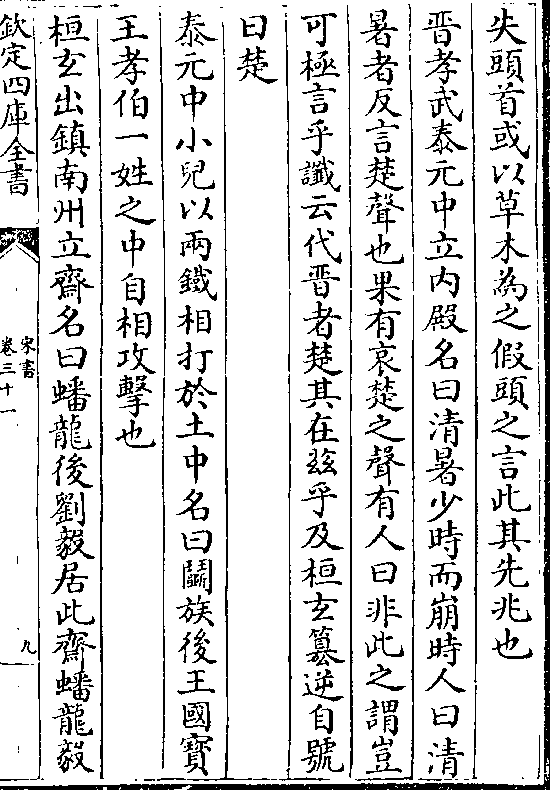 失頭首或以草木為之假頭之言此其先兆也
晉孝武泰元中立内殿名曰清暑少時而崩時人曰清
暑者反言楚聲也果有哀楚之聲有人曰非此之謂豈
可極言乎讖云代晉者楚其在兹乎及桓玄篡逆自號
曰楚
泰元中小兒以兩鐵相打於土中名曰鬭族後王國寶
王孝伯一姓之中自相攻擊也
桓玄出鎮南州立齋名曰蟠龍後劉毅居此齋蟠龍毅
欽定四庫全書
宋書
卷三十一
九